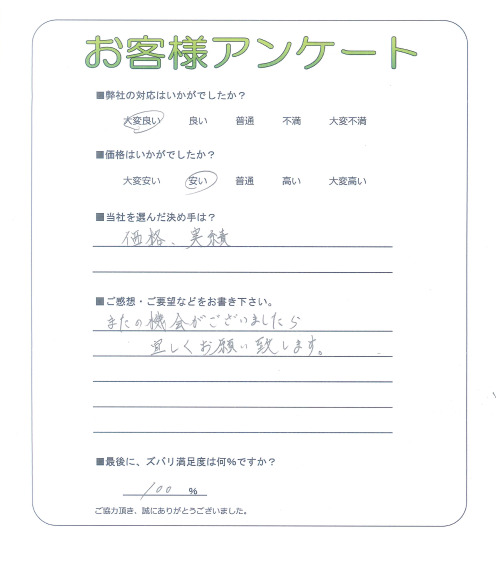 お客様アンケート
■弊社の対応はいかがでしたか？
大変良い 良い 普通 不満 大変不満
■価格はいかがでしたか？
大変安い 安い 普通 高い 大変高い
■当社を選んだ決め手は？
価格、実績
■ご感想・ご要望などをお書き下さい。
またの機会がございましたら
宜しくお願い致します。
■最後に、ズバリ満足度は何%ですか？
100 %
ご協力頂き、誠にありがとうございました。